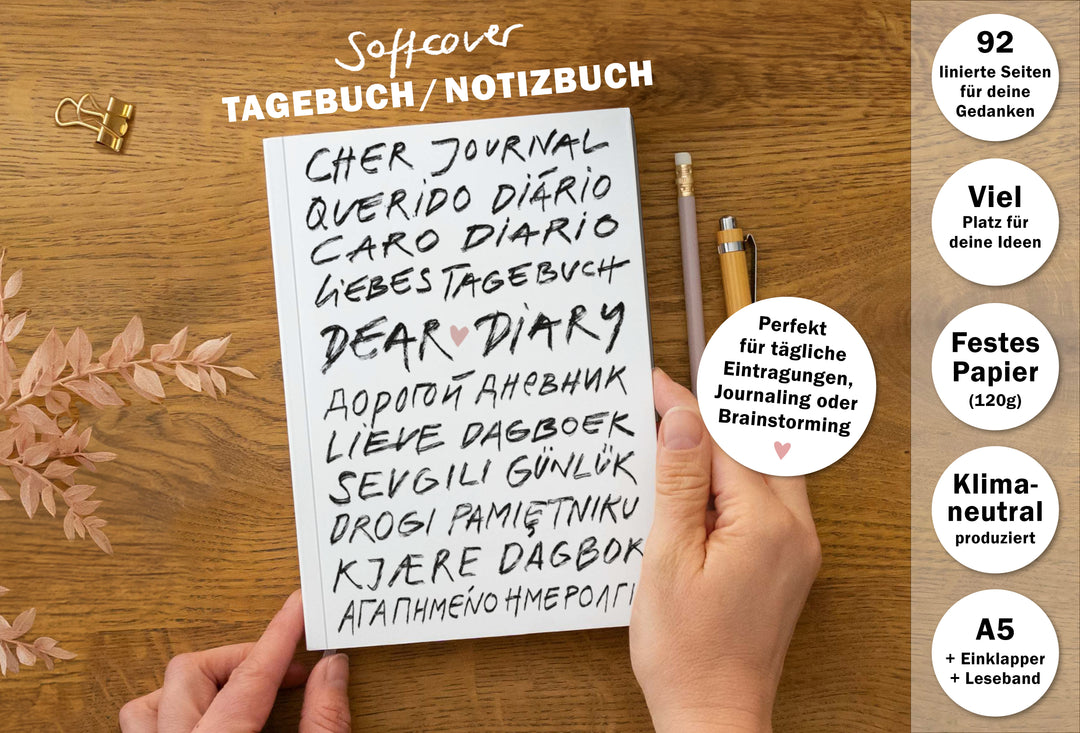 Softcover
TAGEBUCH / NOTIZBUCH
CHER JOURNAL
QUERIDO DIÁRIO
CARO DIARIO
LIEBES TAGEBUCH
DEAR DIARY
ДОРОГОЙ ДНЕВНИК
LIEVE DAGBOEK
SEVGILI GÜNLÜK
DROGI PAMIĘTNIKU
KJÆRE DAGBOK
ΑΓΑΠΗΜΈΝΟ ΗΜΕΡΟΛΓΙ
Perfekt
für tägliche
Eintragungen,
Journaling oder
Brainstorming
92
linierte Seiten
für deine
Gedanken
Viel
Platz für
deine Ideen
Festes
Papier
(120g)
Klima-
neutral
produziert
A5
+ Einklapper
+ Leseband